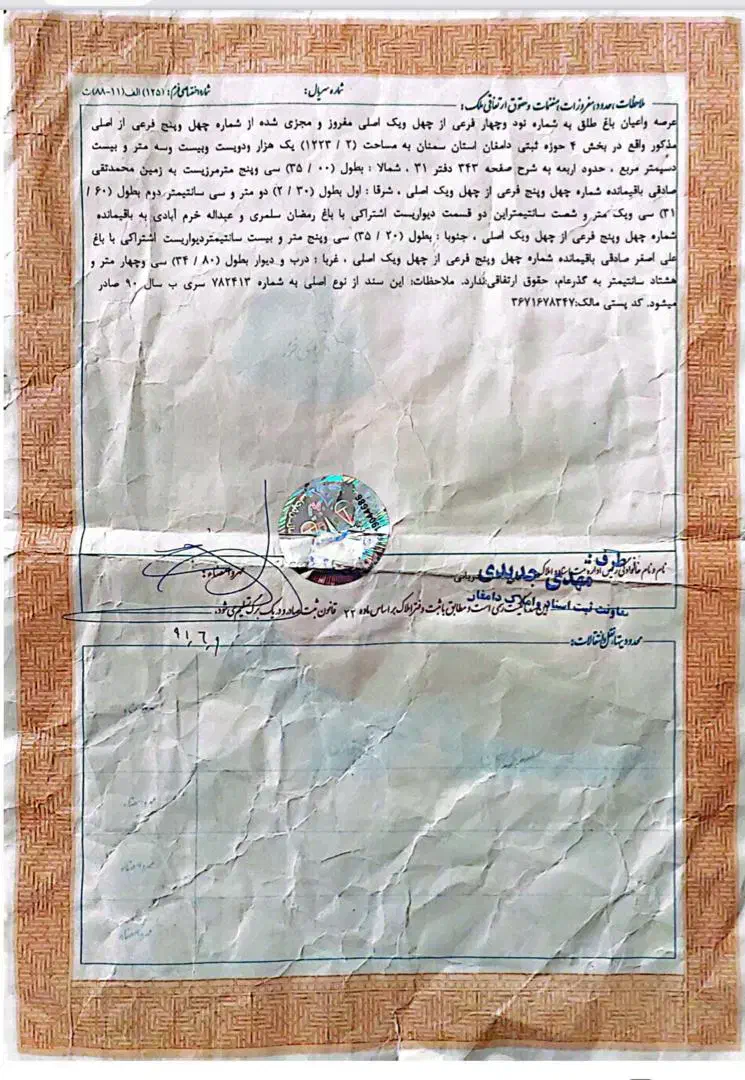 شماره سریال:
شماره اختصاصی فرم: (۱۲۵) الف (۱۱-۸۸) ث
ملاحظات، حدود، مفروزات، منضمات و حقوق ارتفاقی ملک:
عرصه واعیان باغ طلق به شماره نود وچهار فرعی از چهل ویک اصلی مفروز و مجزی شده از شماره چهل وپنج فرعی از اصلی
مذکور واقع در بخش ۴ حوزه ثبتی دامغان استان سمنان به مساحت (۲ / ۱۲۲۳) یک هزار ودویست وبیست وسه متر و بیست
دسیمتر مربع ، حدود اربعه به شرح صفحه ۳۴۳ دفتر ۳۱ ، شمالا : بطول (۰۰ / ۳۵) سی وپنج مترمرزیست به زمین محمدتقی
صادقی باقیمانده شماره چهل وپنج فرعی از چهل ویک اصلی ، شرقا : اول بطول (۳۰ / ۲) دو متر و سی سانتیمتر دوم بطول (۶۰ /
۳۱) سی ویک متر و شصت سانتیمتراین دو قسمت دیواریست اشتراکی با باغ رمضان سلمری و عیداله خرم آبادی به باقیمانده
شماره چهل وپنج فرعی از چهل ویک اصلی ، جنوبا : بطول (۲۰ / ۳۵) سی وپنج متر و بیست سانتیمتردیواریست اشتراکی با باغ
علی اصغر صادقی باقیمانده شماره چهل وپنج فرعی از چهل ویک اصلی ، غربا : درب و دیوار بطول (۸۰ / ۳۴) سی وچهار متر و
هشتاد سانتیمتر به گذرعام، حقوق ارتفاقی:ندارد. ملاحظات: این سند از نوع اصلی به شماره ۷۸۲۴۱۳ سری ب سال ۹۰ صادر
میشود. کد پستی مالک:۳۶۷۱۶۷۸۳۴۷
نام و نام خانوادگی رئیس اداره ثبت اسناد و املاک
از طرف:
مهدی حدیدی
مهر و امضاء:
معاونت ثبت اسناد و املاک دامغان
است و مطابق با ثبت دفتر املاک بر اساس ماده ۲۲ قانون ثبت صادر و در یک برگ تسلیم می شود.
۹۱٫۶٫۹
محدودیتها، نقل و انتقالات:
مهر و امضاء
مهر و امضاء
مهر و امضاء
مهر و امضاء